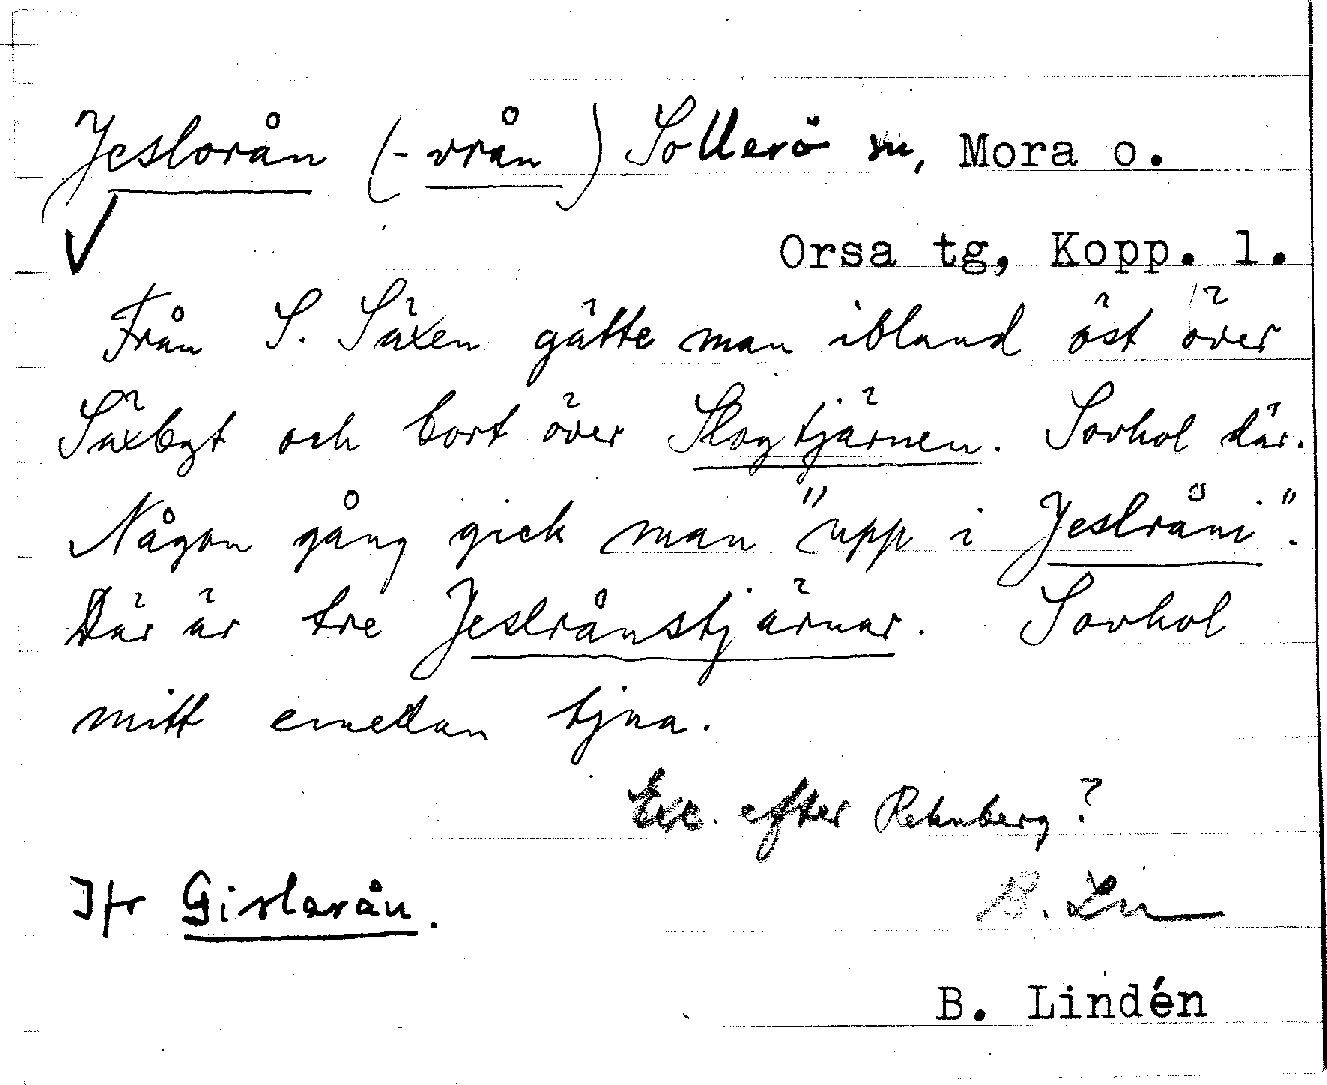 Jeslorån (-vrån) Sollerö sn, Mora o.
Orsa tg, Kopp. l.
Från S. Säxen gätte man ibland öst över
Säxbgt och bort över Skogtjärnen. Sovhol där.
Någon gång gick man "upp i Jeslråni".
Där är tre Jeslrånstjärnar. Sovhol
mitt emellan tjna.
Exc. efter Rehnberg?
Jfr Gislarån. B. Ln
B. Lindén